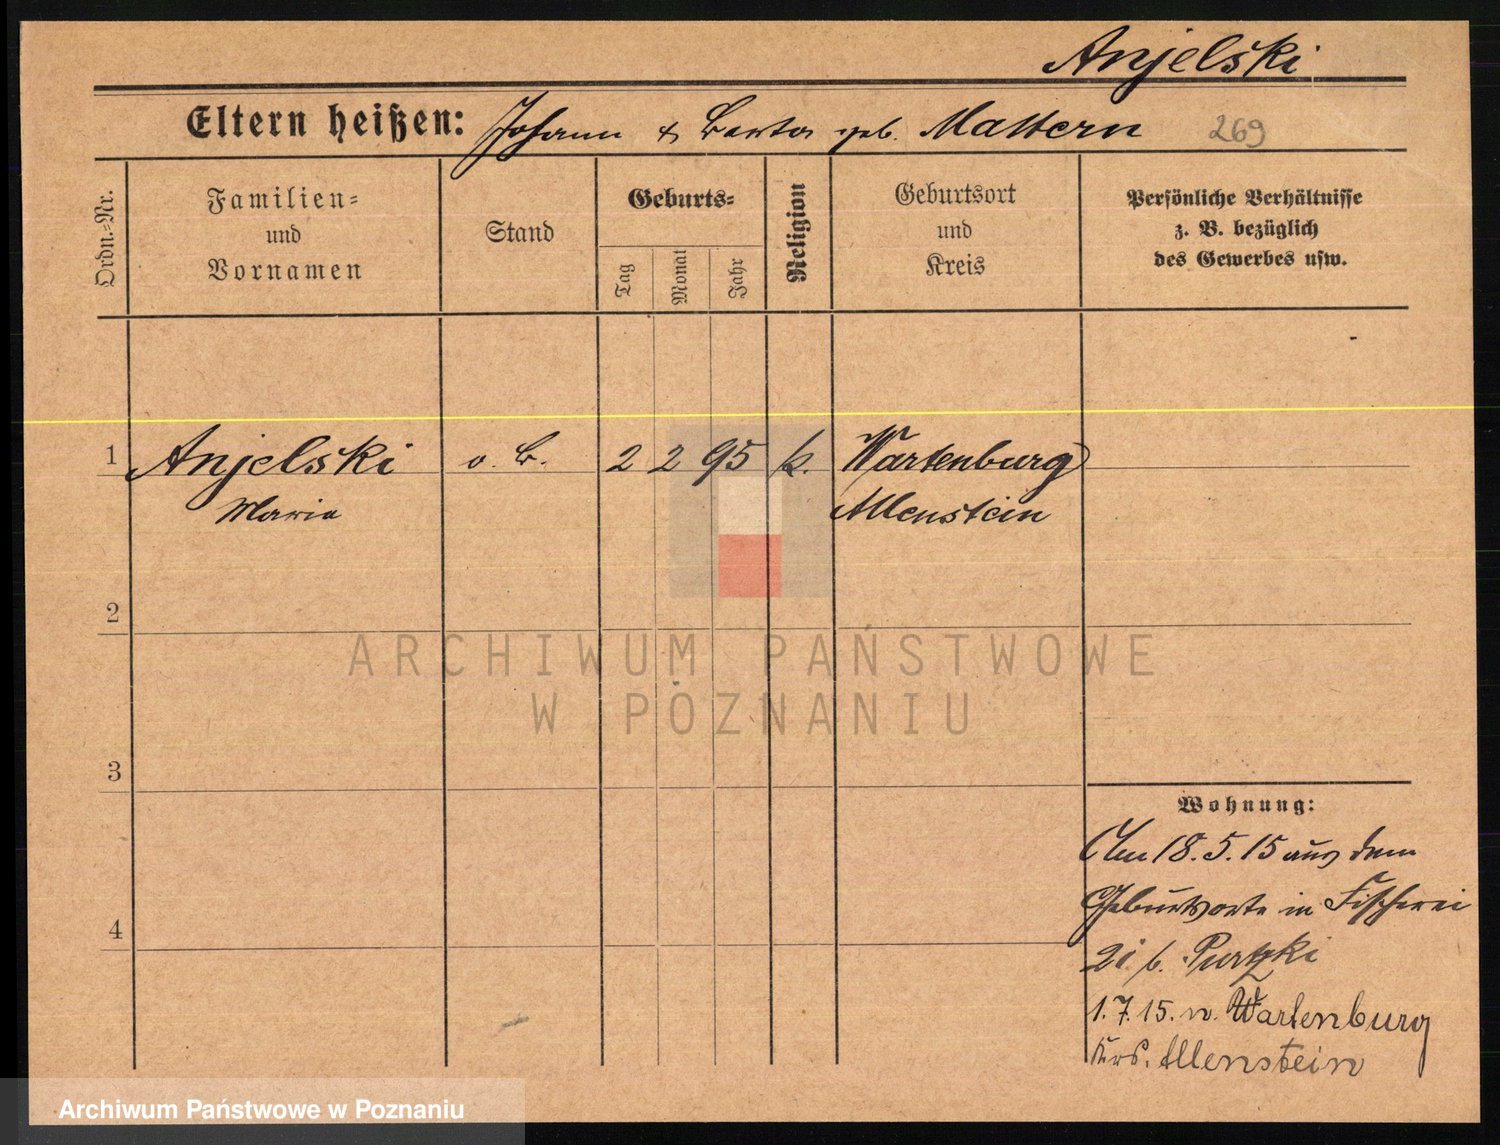 Anjelski
Eltern heißen: Johann & Berta geb. Mattern 269
Ordn.=Nr.
Familien=
und
Vornamen
Stand
Geburts=
Tag
Monat
Jahr
Religion
Geburtsort
und
Kreis
Persönliche Verhältnisse
z. B. bezüglich
des Gewerbes usw.
1 Anjelski o. B. 2 2 95 k. Wartenburg
Maria Allenstein
2
3
4
Wohnung:
Am 18.5.15 aus dem
Geburtsorte in Fischerei
21 b. Purtzki
1.7.15. n. Wartenburg
Krs. Allenstein
ARCHIWUM PAŃSTWOWE
W POZNANIU
Archiwum Państwowe w Poznaniu